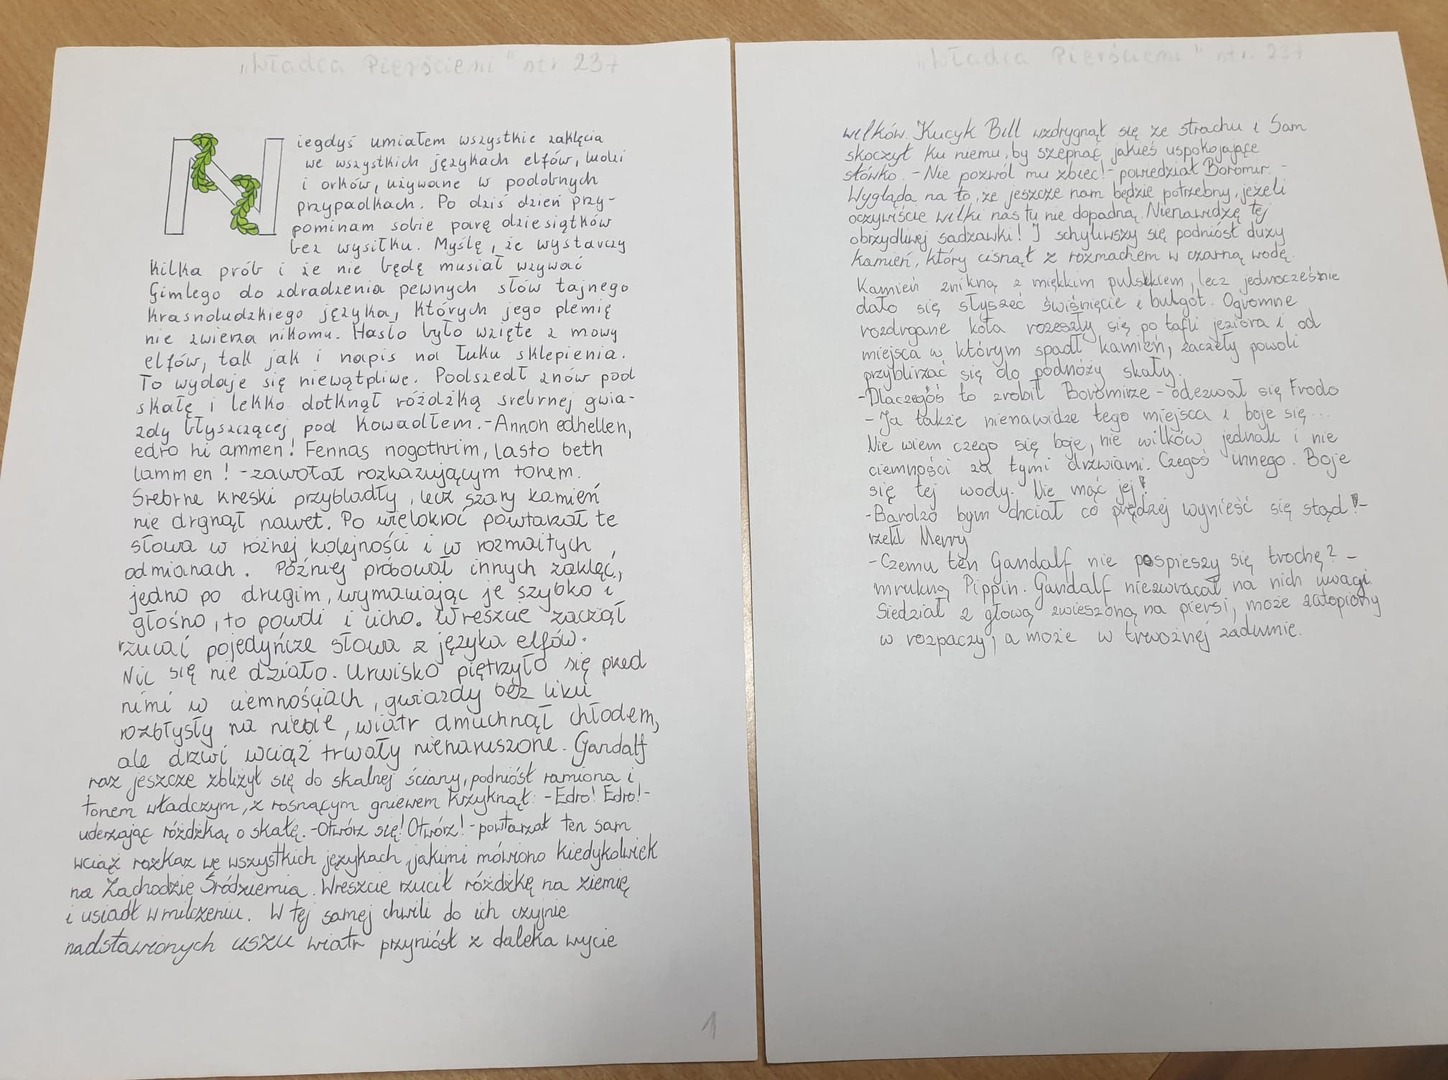 „Władca Pierścieni" str. 237
Niegdyś umiałem wszystkie zaklęcia
we wszystkich językach elfów, ludzi
i orków, używane w podobnych
przypadkach. Po dziś dzień przy-
pominam sobie parę dziesiątków
bez wysiłku. Myślę, że wystarczy
kilka prób i że nie będę musiał wzywać
Gimlego do zdradzenia pewnych słów tajnego
krasnoludzkiego języka, których jego plemię
nie zwierza nikomu. Hasło było wzięte z mowy
elfów, tak jak i napis na łuku sklepienia.
To wydaje się niewątpliwe. Podszedł znów pod
skałę i lekko dotknął różdżką srebrnej gwia-
zdy błyszczącej pod kowadłem.-Annon edhellen,
edro hi ammen! Fennas nogothrim, lasto beth
lammen! -zawołał rozkazującym tonem.
Srebrne kreski przybladły, lecz szary kamień
nie drgnął nawet. Po wielokroć powtarzał te
słowa w różnej kolejności i w rozmaitych
odmianach. Później próbował innych zaklęć,
jedno po drugim, wymawiając je szybko i
głośno, to powoli i cicho. Wreszcie zaczął
rzucać pojedyńcze słowa z języka elfów.
Nic się nie działo. Urwisko piętrzyło się przed
nimi w ciemnościach, gwiazdy bez liku
rozbłysły na niebie, wiatr dmuchnął chłodem,
ale drzwi wciąż trwały nienaruszone. Gandalf
raz jeszcze zbliżył się do skalnej ściany, podniósł ramiona i
tonem władczym, z rosnącym gniewem krzyknął: -Edro! Edro!-
uderzając różdżką o skałę. -Otwórz się! Otwórz! -powtarzał ten sam
wciąż rozkaz we wszystkich językach, jakimi mówiono kiedykolwiek
na Zachodzie Śródziemia. Wreszcie rzucił różdżkę na ziemię
i usiadł w milczeniu. W tej samej chwili do ich czujnie
nadstawionych uszu wiatr przyniósł z daleka wycie
1
„Władca Pierścieni" str. 237
wilków. Kucyk Bill wzdrygnął się ze strachu i Sam
skoczył ku niemu, by szepnąć jakieś uspokojające
słówko. -Nie pozwól mu zbiec!- powiedział Boromir. -
Wygląda na to, że jeszcze nam będzie potrzebny, jeżeli
oczywiście wilki nas tu nie dopadną. Nienawidzę tej
obrzydliwej sadzawki! I schyliwszy się podniósł duży
kamień, który cisnął z rozmachem w czarną wodę.
Kamień znikną z miękkim pluskiem, lecz jednocześnie
dało się słyszeć świśnięcie i bulgot. Ogromne
rozdrgane koła rozeszły się po tafli jeziora i od
miejsca w którym spadł kamień, zaczęły powoli
przybliżać się do podnóży skały.
-Dlaczegóś to zrobił Boromirze - odezwał się Frodo
- Ja także nienawidzę tego miejsca i boje się...
Nie wiem czego się boje, nie wilków jednak i nie
ciemności za tymi drzwiami. Czegoś innego. Boje
się tej wody. Nie mąć jej!
-Bardzo bym chciał co prędzej wynieść się stąd!-
rzekł Merry
-Czemu ten Gandalf nie pospieszy się trochę? -
mrukną Pippin. Gandalf niezwracał na nich uwagi.
Siedział z głową zwieszoną na piersi, może zatopiony
w rozpaczy, a może w trwożnej zadumie.